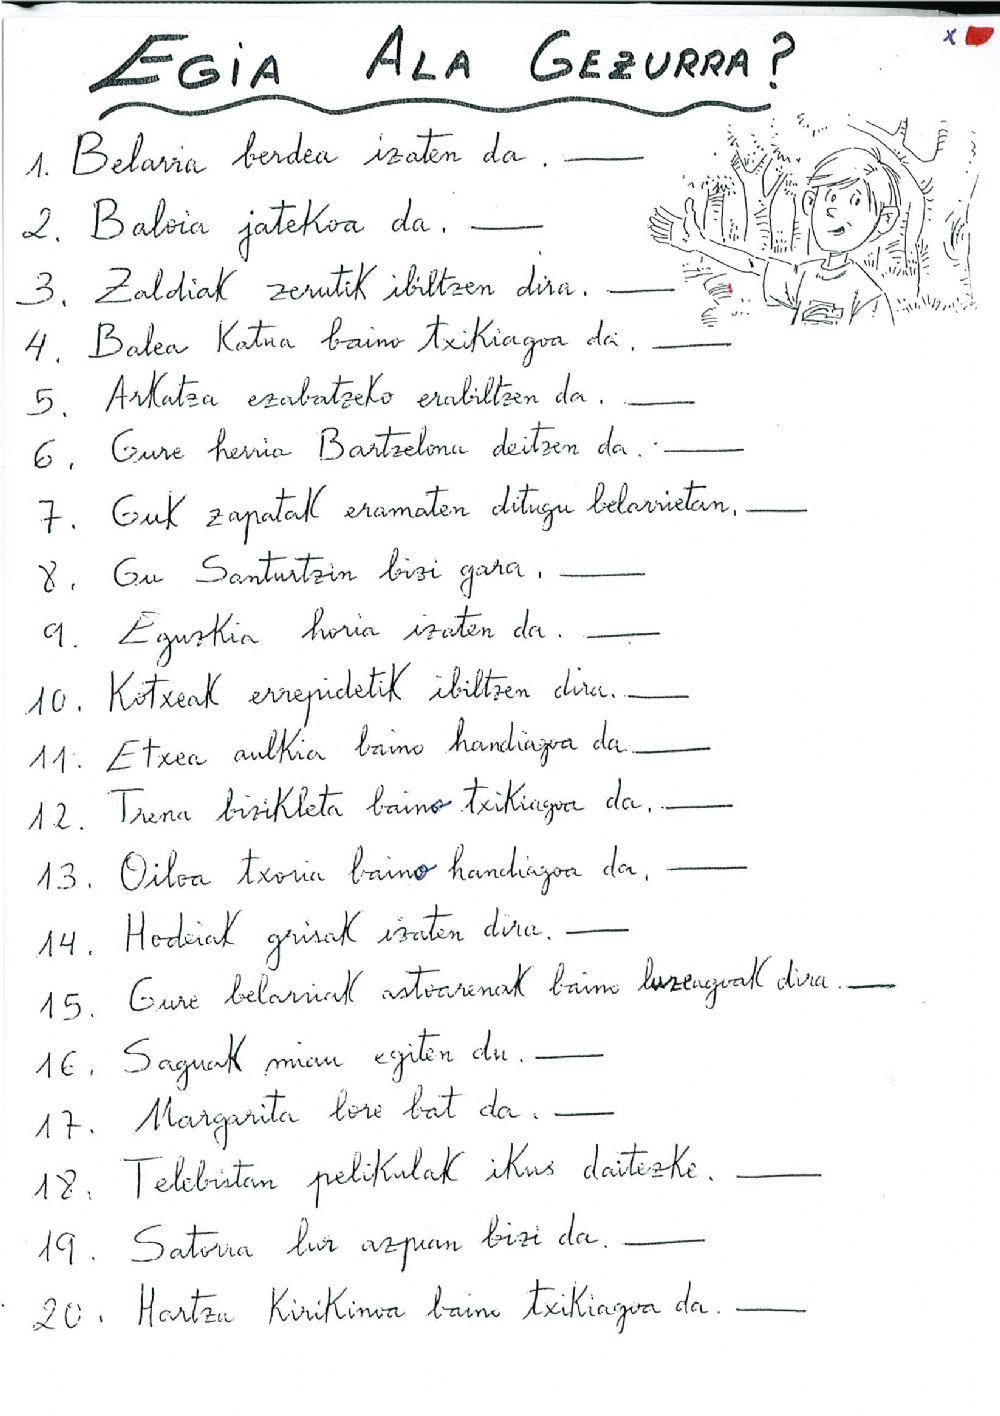 EGIA ALA GEZURRA?
x
1. Belarra berdea izaten da.
2. Baloia jatekoa da.
3. Zaldiak zerutik ibiltzen dira.
4. Balea Katua baino txikiagoa da.
5. Arkatza ezabatzeko erabiltzen da.
6. Gure herria Bartzelona deitzen da.
7. Guk zapatak eramaten ditugu belarrietan.
8. Gu Santurtzin bizi gara.
9. Eguzkia horia izaten da.
10. Kotxeak errepidetik ibiltzen dira.
11. Etxea aulkia baino handiagoa da.
12. Trena bizikleta baino txikiagoa da.
13. Oiloa txoria baino handiagoa da.
14. Hodeiak grisak izaten dira.
15. Gure belarriak astoarenak baino luzeagoak dira.
16. Saguak miau egiten du.
17. Margarita lore bat da.
18. Telebistan pelikulak ikus daitezke.
19. Satorra lur azpian bizi da.
20. Hartza Kirikinoa baino txikiagoa da.